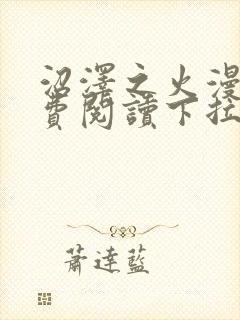 沼澤之火漫
費閱讀下拉
蕭達藍